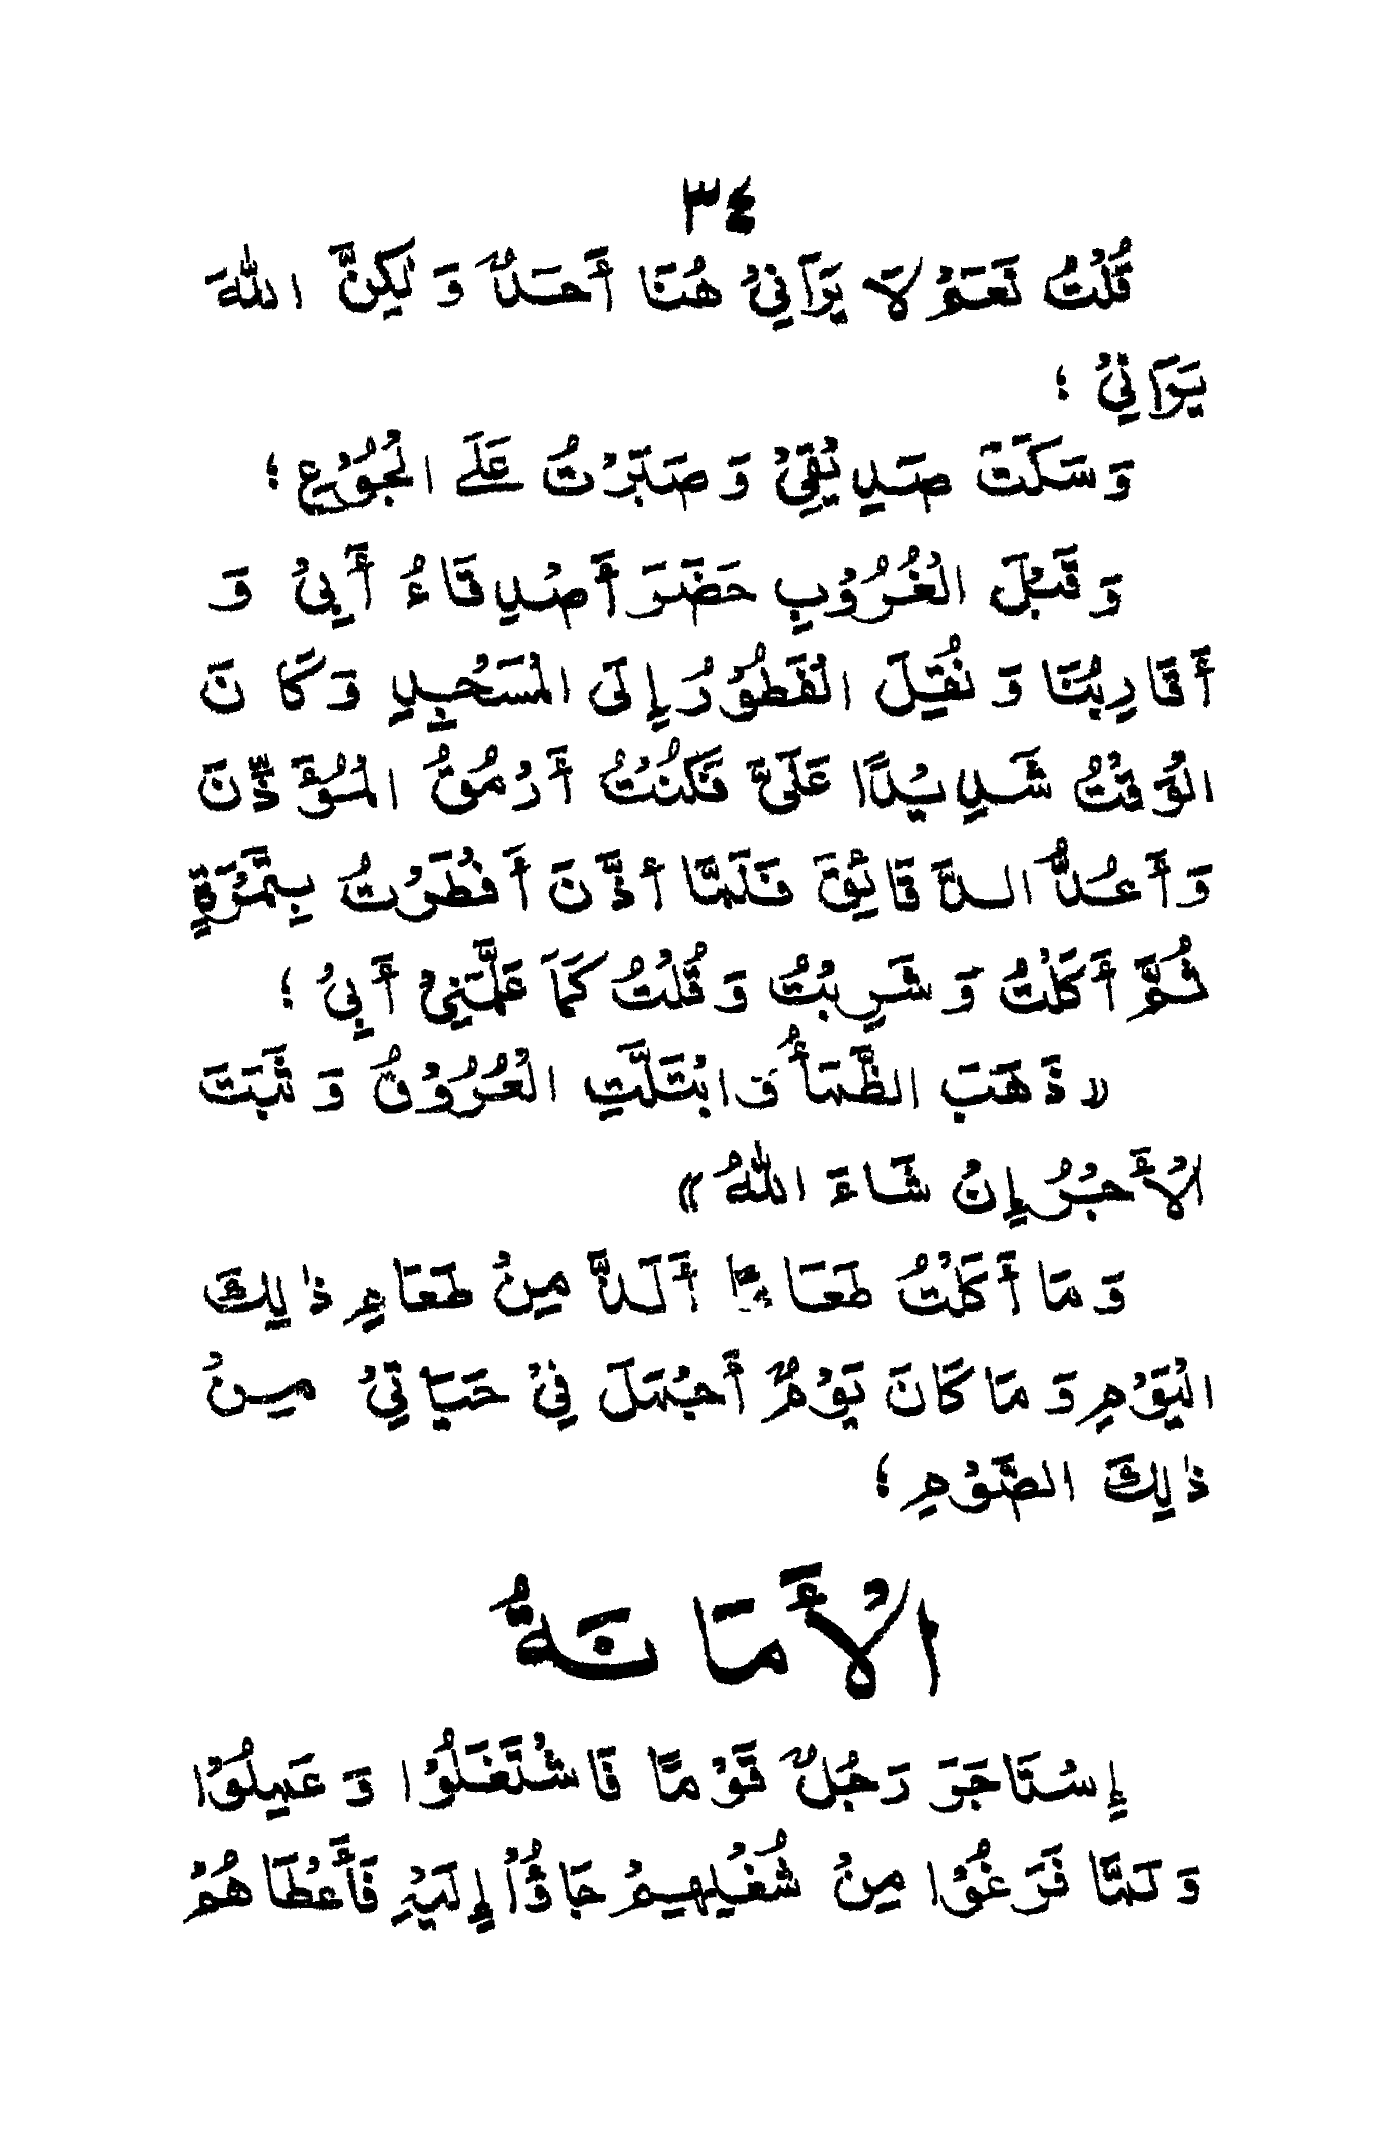 ٣٤
قُلْتُ نَعَمْ لَا يَرَانِيْ هُنَا أَحَدٌ وَلٰكِنَّ اللهَ
يَرَانِيْ ؛
وَسَكَتَ صَدِيْقِيْ وَصَبَرْتُ عَلَے الْجُوْعِ ؛
وَقَبْلَ الْغُرُوْبِ حَضَرَ أَصْدِقَاءُ أَبِيْ وَ
أَقَارِبُنَا وَنُقِلَ الْفَطُوْرُ إِلَى الْمَسْجِدِ وَكَانَ
الْوَقْتُ شَدِيْدًا عَلَيَّ فَكُنْتُ أَرْمُقُ الْمُؤَذِّنَ
وَأَعُدُّ الدَّقَائِقَ فَلَمَّا أَذَّنَ أَفْطَرْتُ بِتَمْرَةٍ
ثُمَّ أَكَلْتُ وَشَرِبْتُ وَقُلْتُ كَمَا عَلَّمَنِيْ أَبِيْ ؛
«ذَهَبَ الظَّمَأُ وَابْتَلَّتِ الْعُرُوْقُ وَثَبَتَ
الْأَجْرُ إِنْ شَاءَ اللهُ»
وَمَا أَكَلْتُ طَعَامًا أَلَذَّ مِنْ طَعَامِ ذٰلِكَ
الْيَوْمِ وَمَا كَانَ يَوْمٌ أَجْمَلَ فِيْ حَيَاتِيْ مِنْ
ذٰلِكَ الصَّوْمِ ؛
الْأَمَانَةُ
إِسْتَاجَرَ رَجُلٌ قَوْمًا فَاشْتَغَلُوْا وَعَمِلُوْا
وَلَمَّا فَرَغُوْا مِنْ شُغْلِهِمْ جَاؤُاْ إِلَيْهِ فَأَعْطَاهُمْ